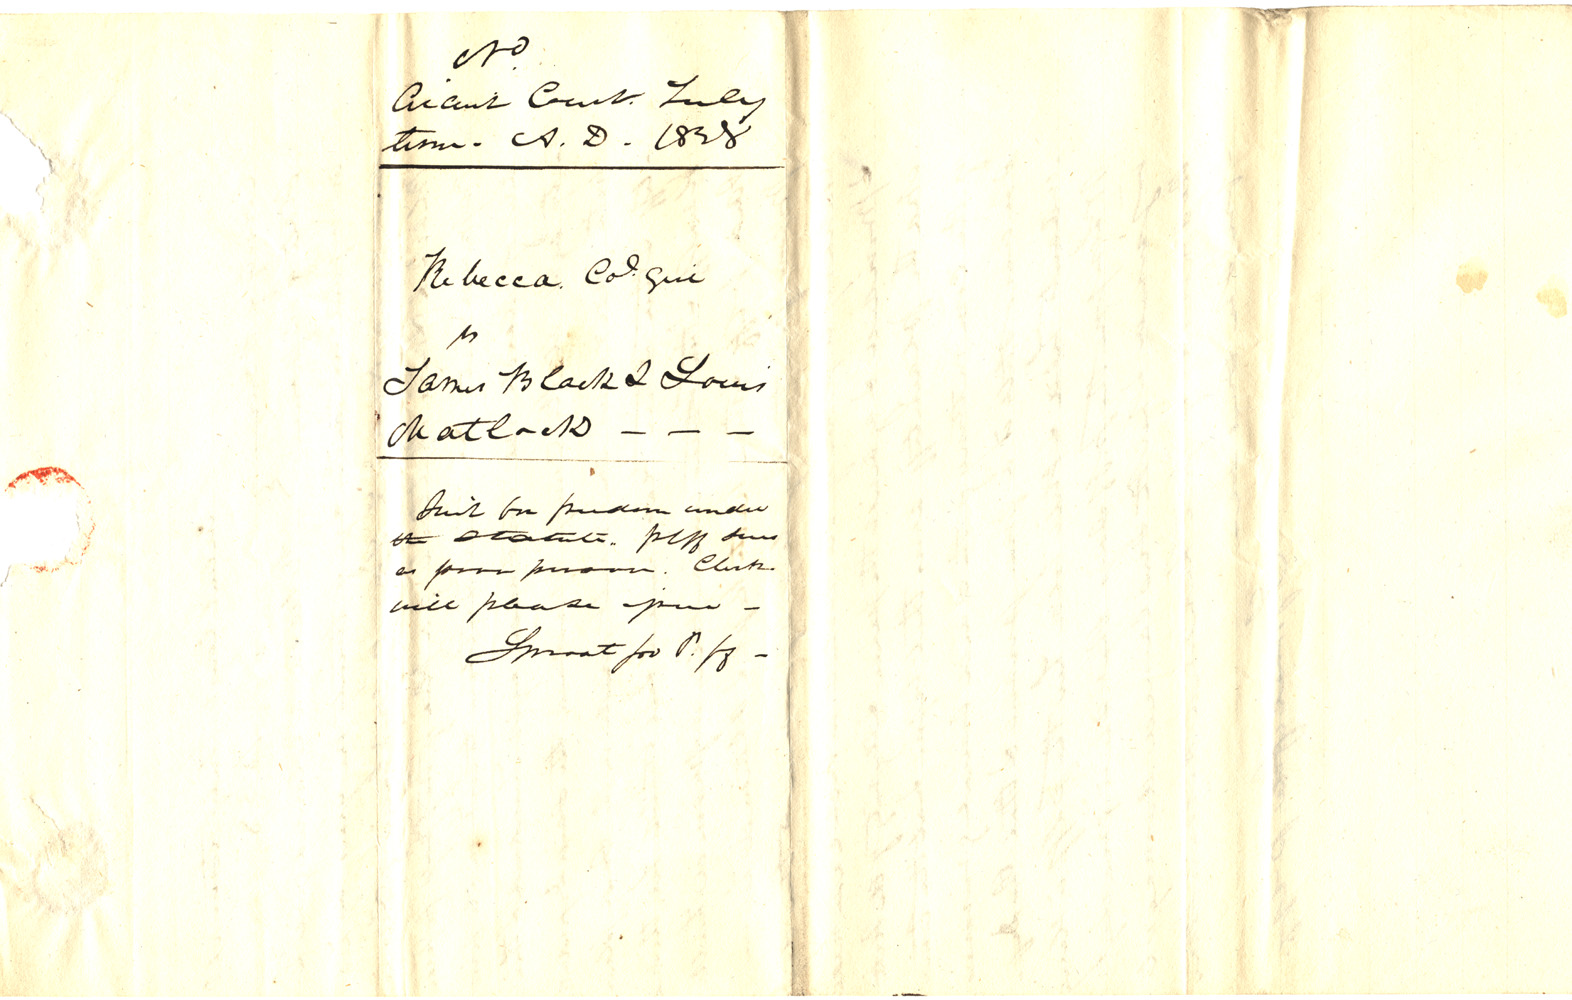 No.
Circuit Court. July
term. A. D. 1838
Rebecca. Cold. Girl
vs
James Black & Louis
Matlock - - -
Suit for freedom under
the statute. Plff sues
as poor person. Clerk
will please issue -
Sproat for P. ff -